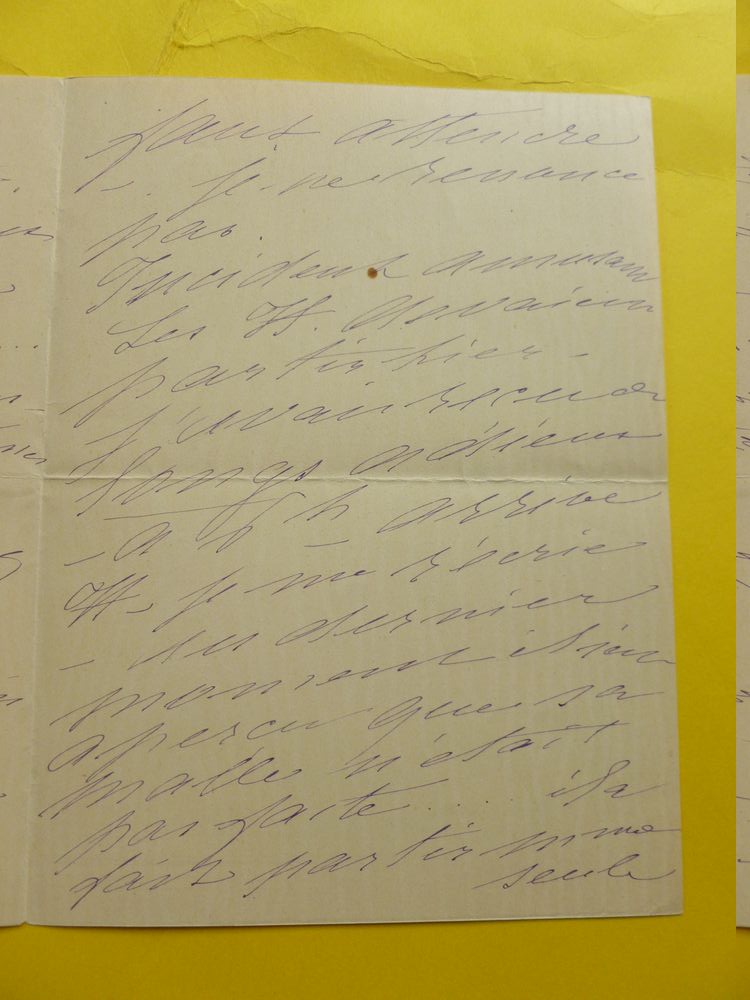 faut attendre
- . Je ne renonce
pas.
Incident amusant
Les H. devaient
partir hier -
J'avais reçu de
longs adieux
- a 6 h - arrive
H - je me récrie
- au dernier
moment il s'en
aperçu que sa
malle n'était
pas faite .... il a
fait partir mme
seule